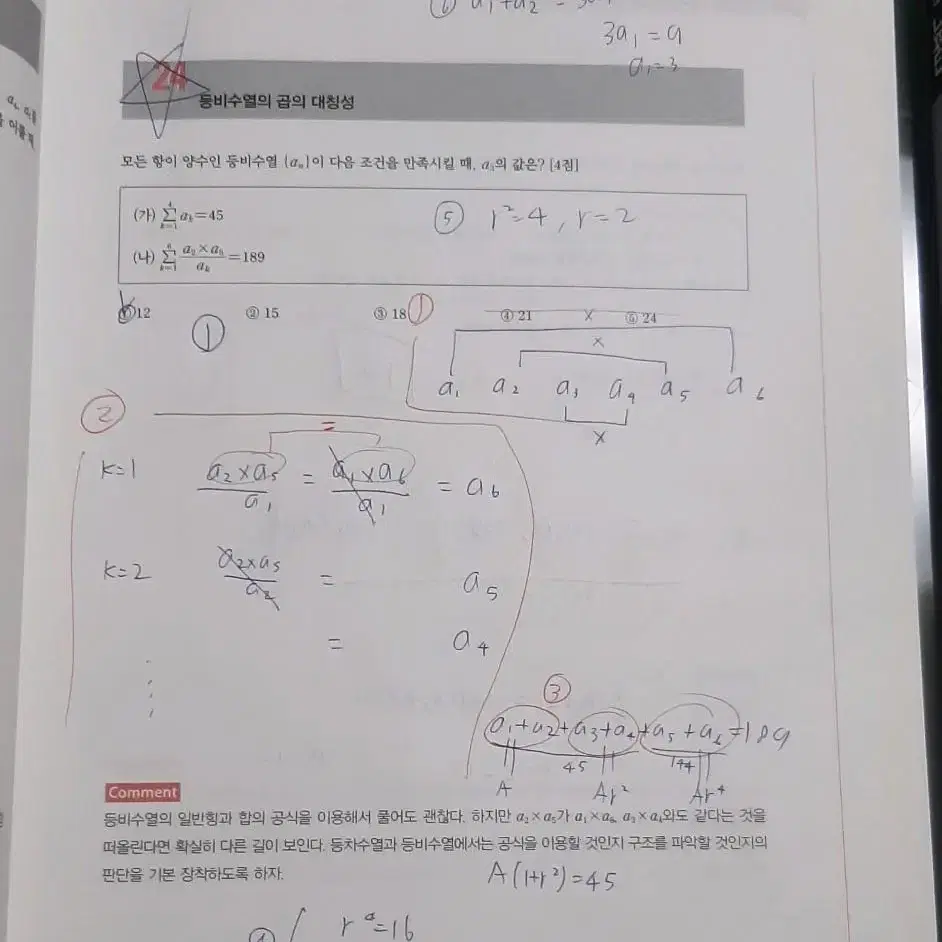 a₁+a₂
3a₁ = 9
a₁=3
24
등비수열의 곱의 대칭성
모든 항이 양수인 등비수열 {aₙ}이 다음 조건을 만족시킬 때, a₃의 값은? [4점]
(가) ∑_{k=1}^{4} aₖ=45
⑤ r²=4, r=2
(나) ∑_{k=1}^{6} (a₂×a₅)/aₖ=189
① 12 ② 15 ③ 18 ④ 21 ⑤ 24
①
①
×
×
a₁ a₂ a₃ a₄ a₅ a₆
×
②
=
k=1 (a₂×a₅)/a₁ = (a₁×a₆)/a₁ = a₆
k=2 (a₂×a₅)/a₂ = a₅
= a₄
③
a₁+a₂+a₃+a₄+a₅+a₆=189
45 144
A Ar² Ar⁴
Comment
등비수열의 일반항과 합의 공식을 이용해서 풀어도 괜찮다. 하지만 a₂×a₅가 a₁×a₆, a₃×a₄와도 같다는 것을
떠올린다면 확실히 다른 길이 보인다. 등차수열과 등비수열에서는 공식을 이용할 것인지 구조를 파악할 것인지의
판단을 기본 장착하도록 하자.
A(1+r²)=45
④ r⁴=16